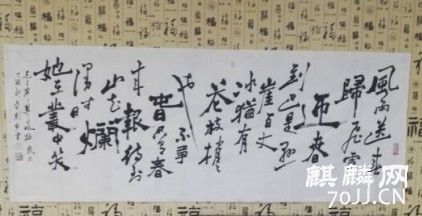 風雨送春
歸飛雪
迎春
到已是懸
崖百丈
冰猶有
花枝俏
也不爭
春只把春
来報待到
山花爛
漫时
她在叢中笑
麒麟网
70JJ.CN